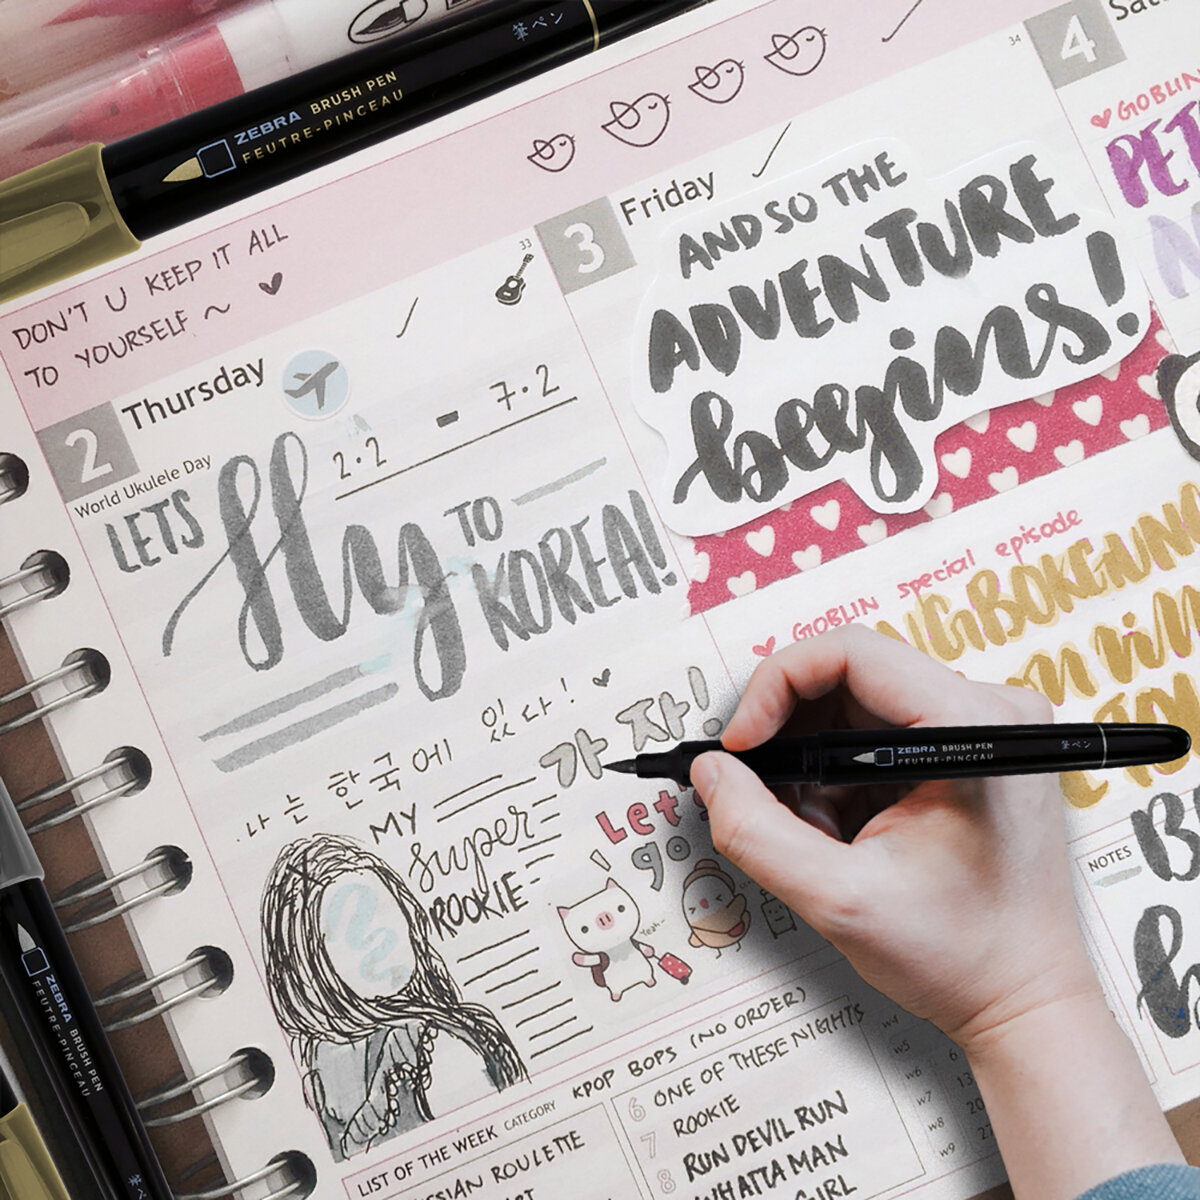 筆ペン
ZEBRA BRUSH PEN
FEUTRE-PINCEAU
DON'T U KEEP IT ALL
TO YOURSELF ~ ♥
2 Thursday
World Ukulele Day
33
2.2 - 7.2
LETS fly TO KOREA!
나는 한국에 있다! ♥
가자!
MY
super
ROOKIE
Let's
go
Yeah~
3 Friday
34
AND SO THE
ADVENTURE
begins!
4
♥ GOBLIN
♥ GOBLIN special episode
ZEBRA BRUSH PEN
FEUTRE-PINCEAU
筆ペン
NOTES
LIST OF THE WEEK CATEGORY KPOP BOPS (NO ORDER)
ROULETTE
6 ONE OF THESE NIGHTS
7 ROOKIE
8 RUN DEVIL RUN
WHATTA MAN
GIRL
w5
w6
w7
w8
w9
ZEBRA BRUSH PEN
FEUTRE-PINCEAU
筆ペン